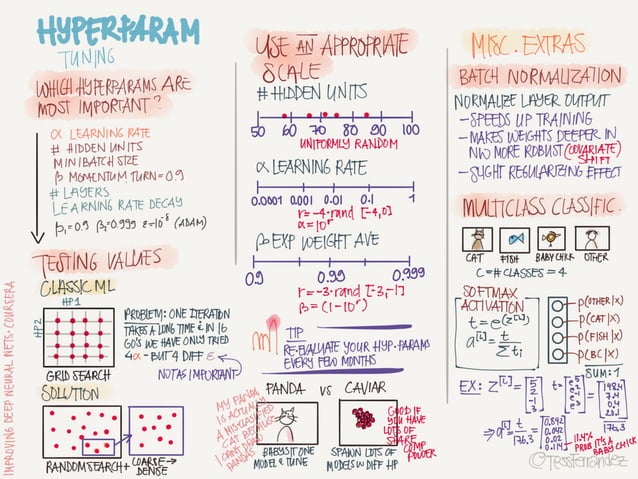 HYPERPARAM
TUNING
WHICH HYPERPARAMS ARE
MOST IMPORTANT?
α LEARNING RATE
# HIDDEN UNITS
MINIBATCH SIZE
β MOMENTUM TURN=0.9
# LAYERS
LEARNING RATE DECAY
β₁=0.9 β₂=0.999 ε=10⁻⁸ (ADAM)
TESTING VALUES
CLASSIC ML
HP1
HP2
GRID SEARCH
PROBLEM: ONE ITERATION
TAKES A LONG TIME & IN 16
GO'S WE HAVE ONLY TRIED
4α - BUT 4 DIFF ε
NOT AS IMPORTANT
SOLUTION
RANDOM SEARCH + COARSE→
DENSE
IMPROVING DEEP NEURAL NETS · COURSERA
USE AN APPROPRIATE
SCALE
# HIDDEN UNITS
50 60 70 80 90 100
UNIFORMLY RANDOM
α LEARNING RATE
0.0001 0.001 0.01 0.1 1
r=-4·rand [-4,0]
α=10ʳ
β EXP WEIGHT AVE
0.9 0.99 0.999
r=-3·rand [-3,-1]
β=(1-10ʳ)
TIP
RE-EVALUATE YOUR HYP.PARAMS
EVERY FEW MONTHS
PANDA VS CAVIAR
MY PANDA
IS ACTUALLY
A MISCLASSIFIED
CAT BECAUSE
I CAN'T
PANDAS
BABYSIT ONE
MODEL & TUNE
SPAWN LOTS OF
MODELS W DIFF HP
GOOD IF
YOU HAVE
LOTS OF
SHARE
COMP
POWER
MISC. EXTRAS
BATCH NORMALIZATION
NORMALIZE LAYER OUTPUT
- SPEEDS UP TRAINING
- MAKES WEIGHTS DEEPER IN
NW MORE ROBUST (COVARIATE)
SHIFT
- SLIGHT REGULARIZING EFFECT
MULTICLASS CLASSIFIC.
CAT FISH BABY CHICK OTHER
C=# CLASSES = 4
SOFTMAX
ACTIVATION
t=e^(z^[L])
a^[L]=t/Σtᵢ
P(OTHER|X)
P(CAT|X)
P(FISH|X)
P(BC|X)
SUM:1
EX: z^[L]=[5 2 -1 3] t=[e⁵ e² e⁻¹ e³]=[148.4 7.4 0.4 20.1]
→a^[L]=t/176.3=[0.842 0.042 0.02 0.14]
11.4%
PROB IT'S A
BABY CHICK
©TessFerrandez